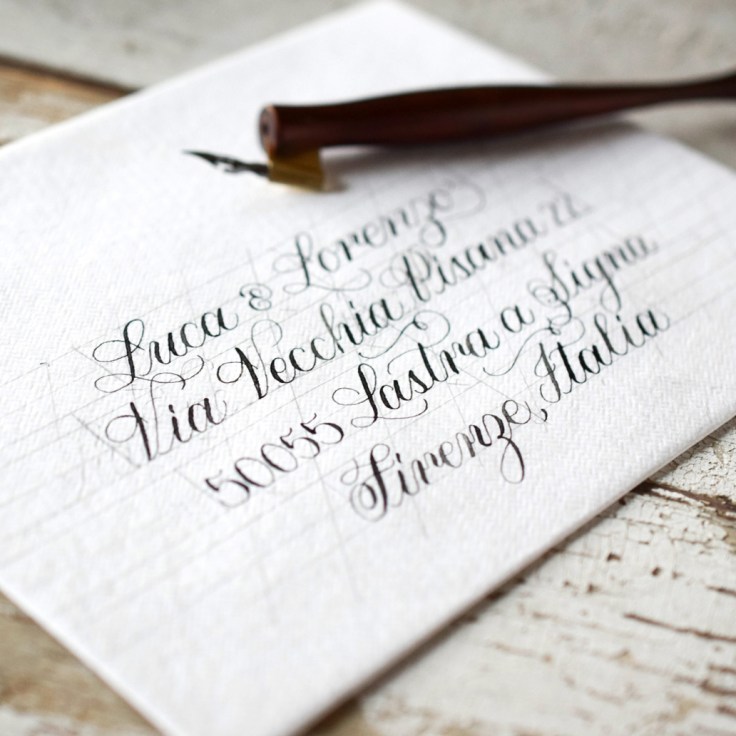 Luca & Lorenzo
Via Vecchia Pisana 22
50055 Lastra a Signa
Firenze, Italia